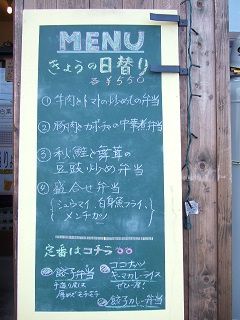 MENU
きょうの日替り
各￥550
① 牛肉とトマトの炒めもの弁当
② 豚肉とカボチャの中華煮弁当
③ 秋鮭と舞茸の
豆豉炒め弁当
④ 盛合せ弁当
（シュウマイ、白身魚フライ、
メンチカツ）
定番はコチラ
餃子弁当
ココナッツ
キーマカレーライス
ぜひ一度！
餃子カレー弁当